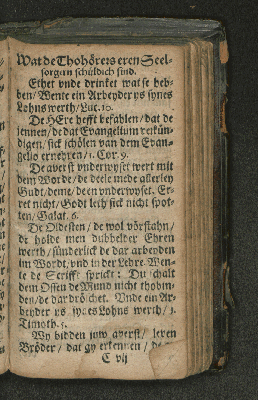 Wat de Thohörers eren Seel-
sorgern schüldich sind.
Ethet vnde drinket wat se heb-
ben / Wente ein Arbeyder ys synes
Lohns werth / Luc. 10.
De HEre hefft befahlen / dat de
jennen / de dat Evangelium verkün-
digen / sick schölen van dem Evan-
gelio ernehren / 1. Cor. 9.
De averst vnderwyset wert mit
dem Worde / de deele mede allerley
Gudt / deme / de en vnderwyset. Er-
ret nicht / Godt leth sick nicht spot-
ten / Galat. 6.
De Oldesten / de wol vörstahn /
de holde men dubbelder Ehren
werth / sünderlick de dar arbeyden
im Wordt / vnd in der Lehre. Wen-
te de Schrifft sprickt: Du schalt
dem Ossen de Mund nicht thobin-
den / de dar dröschet. Vnde ein Ar-
beyder ys synes Lohns werth / 1.
Timoth. 5.
Wy bidden juw averst / leven
Bröder / dat gy erkennen / de
C vij